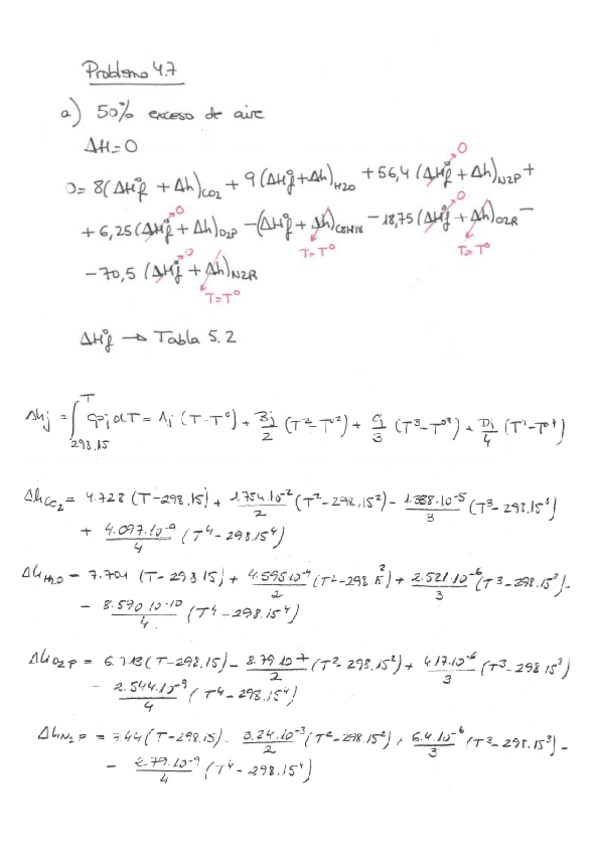 Problema 4.7
a) 50% exceso de aire
ΔH=0
0= 8(ΔH°f + Δh)CO2 + 9(ΔH°f+Δh)H2O + 56,4 (ΔH°f + Δh)N2P +
0
+ 6,25(ΔH°f + Δh)O2P - (ΔH°f + Δh)C8H18 - 18,75 (ΔH°f + Δh)O2R -
0
0
T=T°
T=T°
- 70,5 (ΔH°f + Δh)N2R
0
T=T°
ΔH°f → Tabla 5.2
Δhj = ∫ Cpj dT = Aj (T-T°) + Bj/2 (T²-T°²) + Cj/3 (T³-T°³) + Dj/4 (T⁴-T°⁴)
T
298.15
ΔhCO2 = 4.728 (T-298.15) + 1.754.10⁻²/2 (T²-298.15²) - 1.338.10⁻⁵/3 (T³-298.15³)
+ 4.097.10⁻⁹/4 (T⁴-298.15⁴)
ΔhH2O = 7.701 (T-298.15) + 4.595 10⁻⁴/2 (T²-298.15²) + 2.521.10⁻⁶/3 (T³-298.15³) -
- 8.590.10⁻¹⁰/4 (T⁴-298.15⁴)
ΔhO2P = 6.713(T-298.15) - 8.79.10⁻⁷/2 (T²-298.15²) + 4.17.10⁻⁶/3 (T³-298.15³)
- 2.544.10⁻⁹/4 (T⁴-298.15⁴)
ΔhN2P = 7.44(T-298.15) - 3.24.10⁻³/2 (T²-298.15²) + 6.4.10⁻⁶/3 (T³-298.15³) -
- 2.79.10⁻⁹/4 (T⁴-298.15⁴)